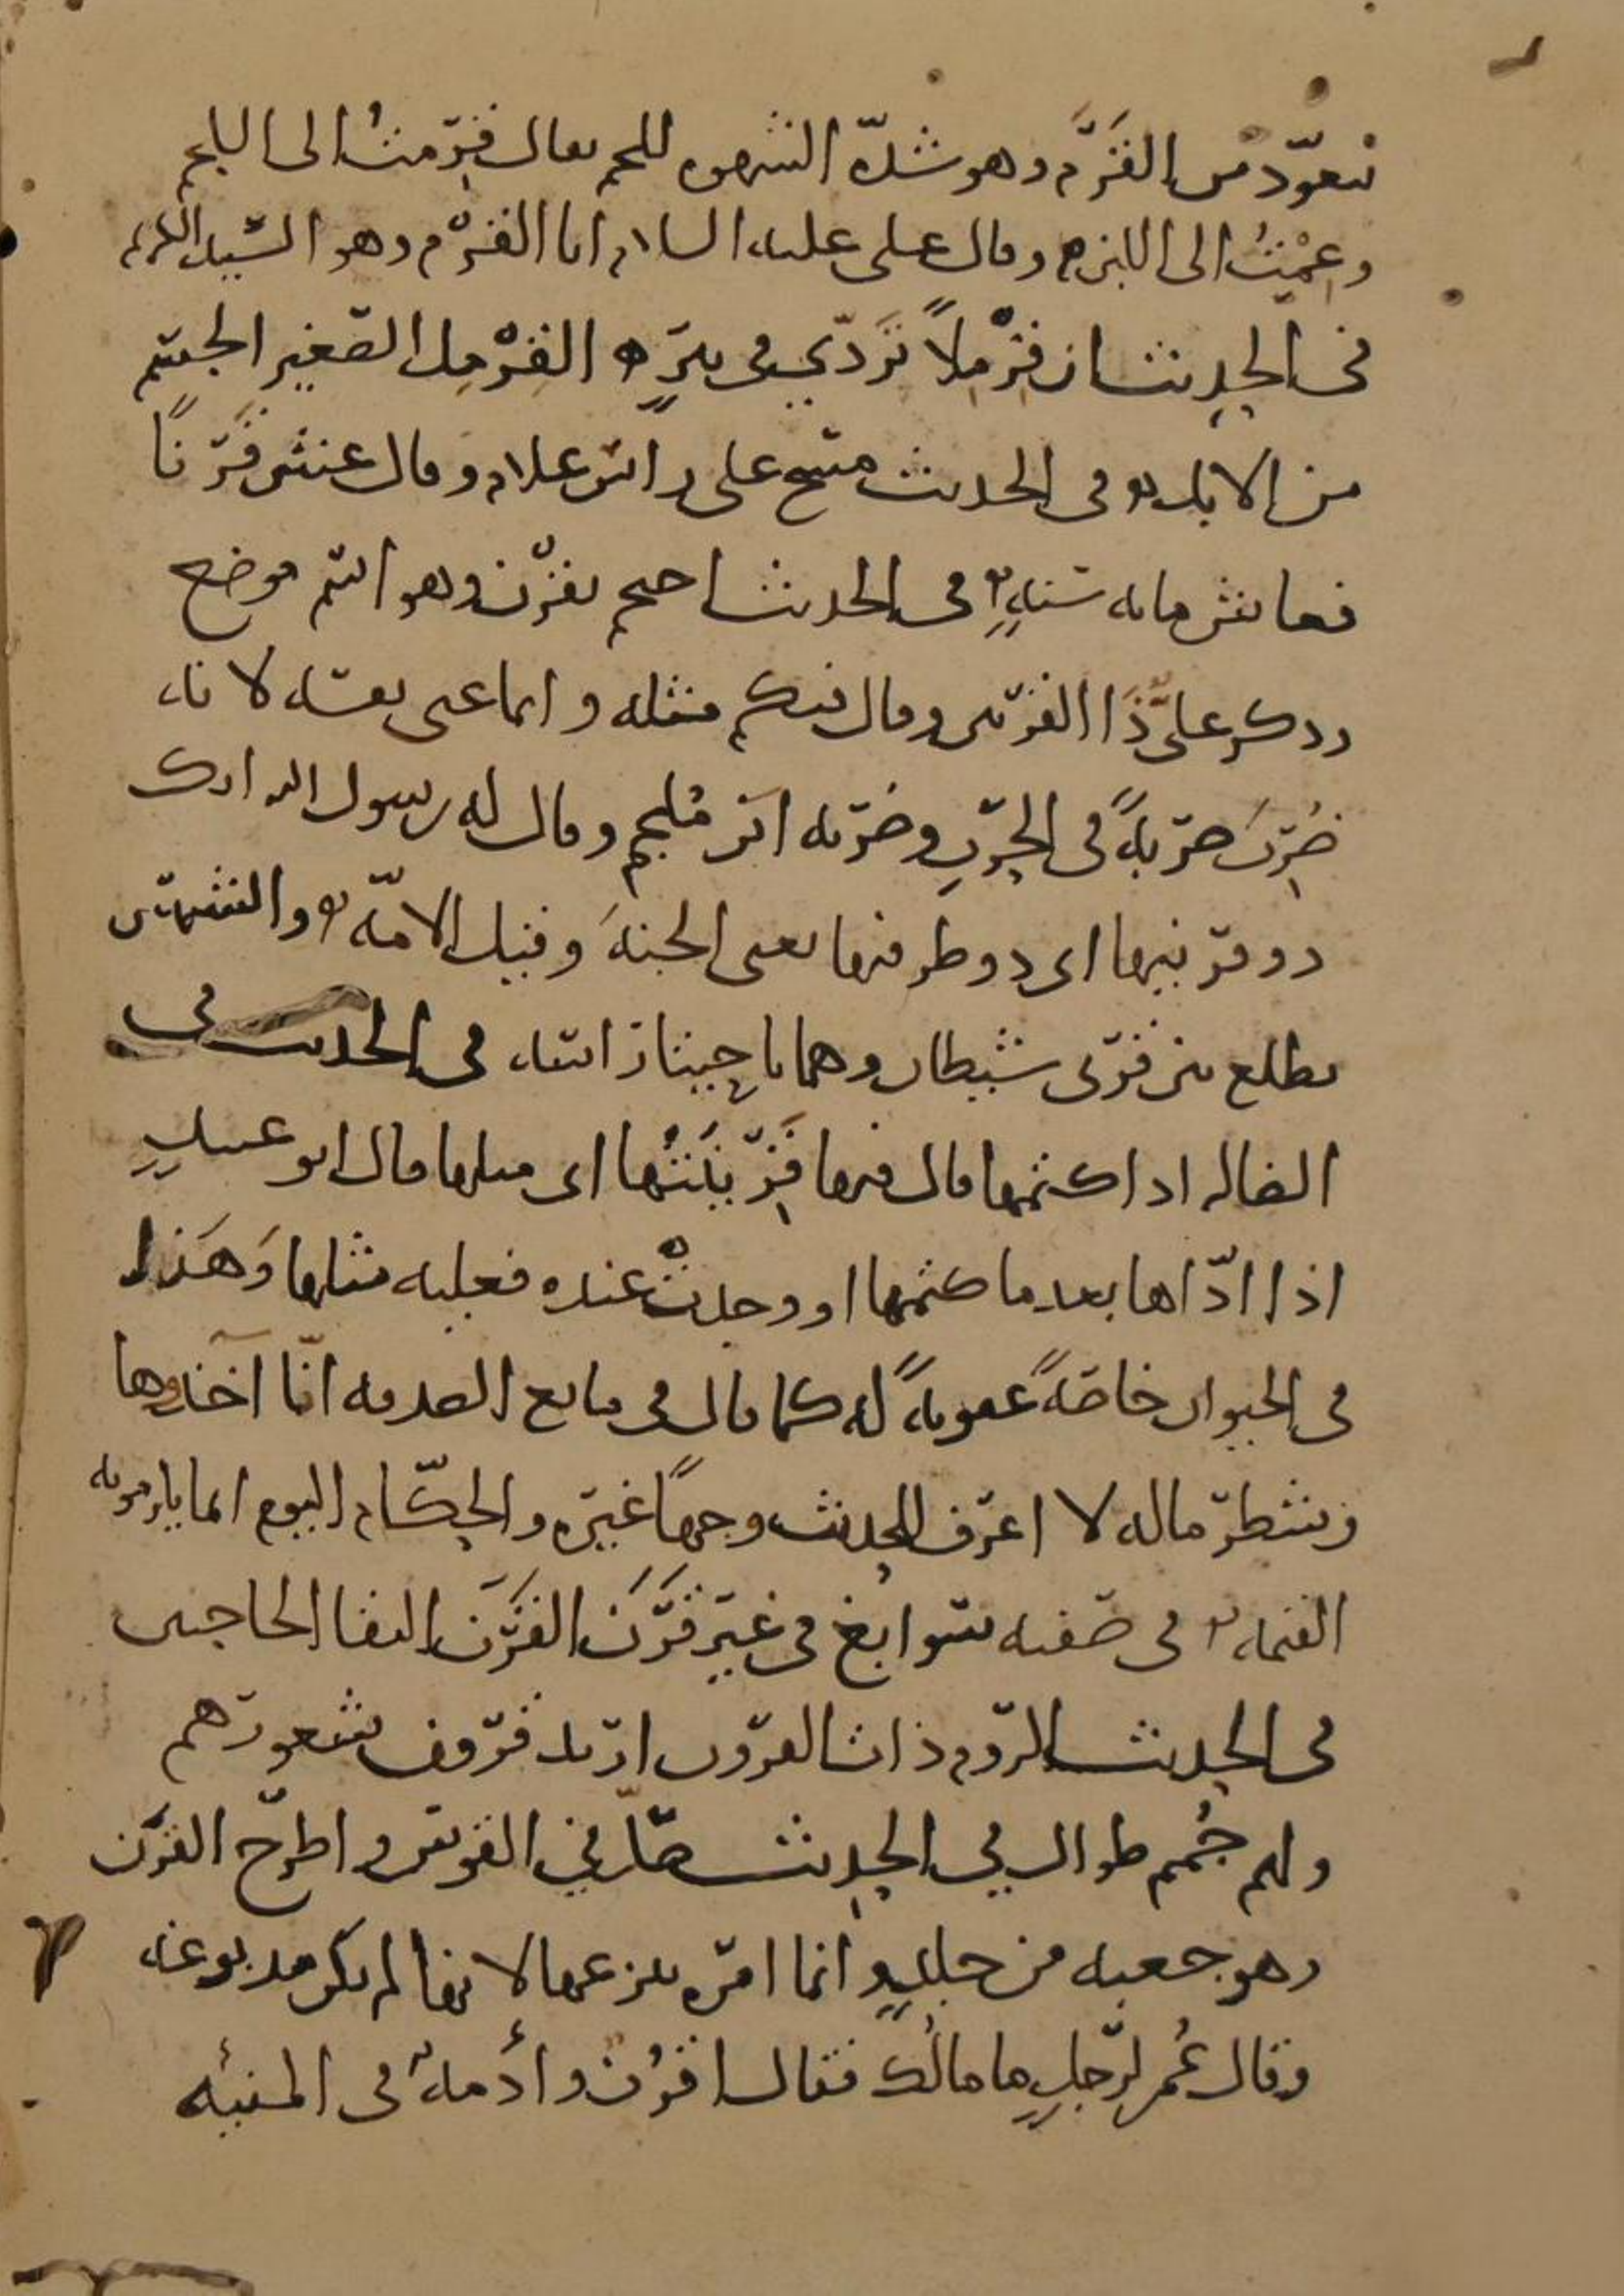 يتعوّذ من القَرَم وهو شدّة الشهوه للحم يقال قرِمتُ الى اللحم
وعِمْتُ الى اللبن وقال على عليه السلام انا القَرْم وهو السّيد الكريم
فى الحديث ان قِرْمِلاً تَرَدّي فى بيرٍ القِرْمِل الصّغير الجسم
من الابل وفى الحديث مسح على راس غلام وقال عش قَرْنًا
فعاش مايه سنهٍ فى الحديث احتجم بقَرْن وهو اسم موضع
وذكر علىٌّ ذَا القرنين وقال فيكم مثله وانما عنى نفسه لانه
ضُرِبَ ضربهً فى الحرْبِ وضربه ابن مُلجم وقال له رسول الله انك
ذو قرنيها اى ذو طرفيها يعنى الجنهَ وقيل الامّه والشمس
تطلع بين قرنى شيطان وهما ناحيتا راسه فى الحديث فى
الضاله اذا كتمها قال فيها قَرِينَتُها اى مثلها قال ابو عبيدٍ
اذا ادّاها بعد ما كتمها او وجدتْ عنده فعليه مثلها وَهَذا
فى الحيوان خاصّهً عقوبهً له كما قال فى مانع الصدقه انّا آخذوها
وشطر ماله لا اعرف للحديث وجهًا غيره والحكّام اليوم انما يلزمونه
القيمه فى صفته سوابغ فى غير قَرَنَ القَرَن التقا الحاجبين
فى الحديث الروم ذات القرون اريد قرون شعورهم
ولهم جُمم طوال فى الحديث صَلّ فى القوس واطرح القرن
وهو جعبه من جلدٍ وانما امره بنزعها لانها لم تكن مدبوغه
وقال عُمر لرجلٍ ما مالُك فقال اقرُن وأدمه فى المنيئه